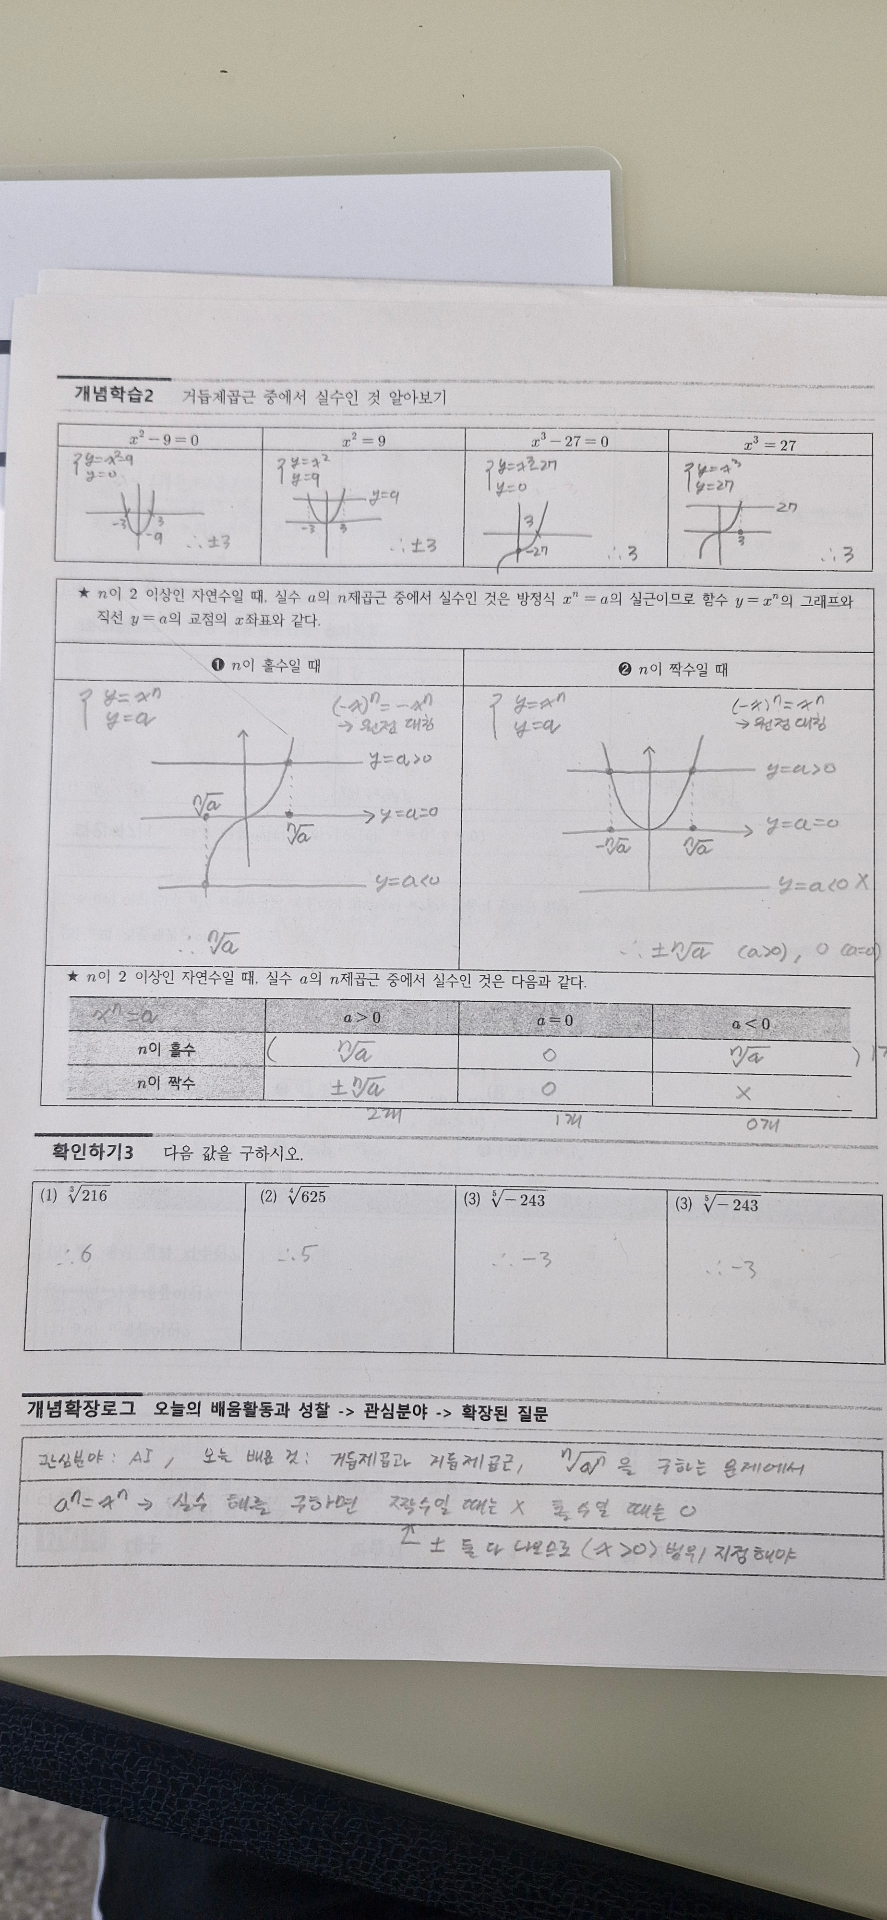 개념학습2 거듭제곱근 중에서 실수인 것 알아보기
x² − 9 = 0 x² = 9 x³ − 27 = 0 x³ = 27
{ y=x²-9 { y=x² { y=x³-27 { y=x³
y=0 y=9 y=0 y=27
y=9 27
-3 3 -3 3 3 3
-9 ∴ ±3 ∴ ±3 -27 ∴ 3 ∴ 3
★ n이 2 이상인 자연수일 때, 실수 a의 n제곱근 중에서 실수인 것은 방정식 xⁿ = a의 실근이므로 함수 y = xⁿ의 그래프와
직선 y = a의 교점의 x좌표와 같다.
❶ n이 홀수일 때 ❷ n이 짝수일 때
{ y=xⁿ (-x)ⁿ = -xⁿ { y=xⁿ (-x)ⁿ = xⁿ
y=a → 원점 대칭 y=a → 원점 대칭
y=a>0 y=a>0
ⁿ√a ⁿ√a y=a=0 -ⁿ√a ⁿ√a y=a=0
y=a<0 y=a<0 X
∴ ⁿ√a ∴ ±ⁿ√a (a>0), 0 (a=0)
★ n이 2 이상인 자연수일 때, 실수 a의 n제곱근 중에서 실수인 것은 다음과 같다.
xⁿ=a a > 0 a = 0 a < 0
n이 홀수 ( ⁿ√a 0 ⁿ√a )
n이 짝수 ±ⁿ√a 0 X
2개 1개 0개
확인하기3 다음 값을 구하시오.
(1) ³√216 (2) ⁴√625 (3) ⁵√−243 (3) ⁵√−243
∴ 6 ∴ 5 ∴ -3 ∴ -3
개념확장로그 오늘의 배움활동과 성찰 -> 관심분야 -> 확장된 질문
관심분야 : AI , 오늘 배운 것 : 거듭제곱과 거듭제곱근, ⁿ√aⁿ 을 구하는 문제에서
aⁿ=xⁿ → 실수 해를 구하면 짝수일 때는 X 홀수일 때는 O
↑ ± 둘 다 나오므로 (x>0) 범위 지정해야